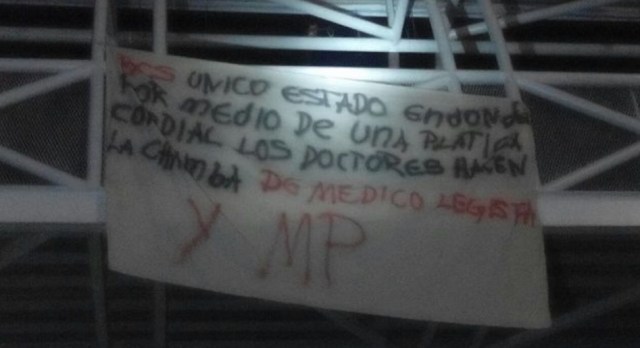 BCS UNICO ESTADO ENDONDE
POR MEDIO DE UNA PLATICA
CORDIAL LOS DOCTORES HACEN
LA CHAMBA DE MEDICO LEGISTA
Y MP